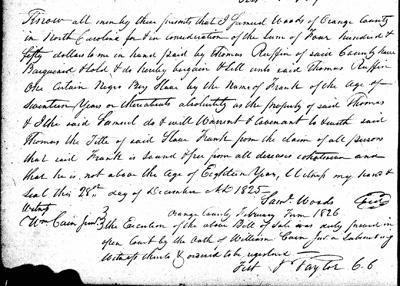 Know all men by these presents that I Samuel Woods of Orange County
in North Carolina for & in consideration of the sum of Four hundred &
fifty dollars to me in hand paid by Thos Ruffin of said County have
Bargained & Sold, & do hereby bargain & sell unto said Thomas Ruffin
One Certain Negro Boy Slave by the Name of Frank of the Age of
Seventeen Years or thereabouts absolutely as the property of said Thomas
& I the said Samuel do & will Warrant & Covenant to & with said
Thomas the Title of said Slave Frank from the claim of all persons
that said Frank is Sound & free from all diseases whatsoever and
that he is not above the Age of Eighteen Years, Witness my hand &
Seal this 28th day of December AD 1825
Saml Woods
Witness
Wm Cain Junr
Orange County February Term 1826
the Execution of the above Bill of Sale was duly proved in
open Court by the Oath of William Cain Jur a Subscribing
Witness thereto & ordered to be registered
Test J Taylor C.C